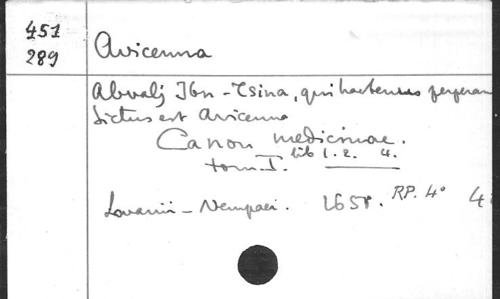 451
289
Avicenna
Abvalj Ibn-Tsina, qui hactenus perperam
dictus est Avicenna
Canon medicinae.
tom I. lib 1. 2. 4.
Lovanii - Nempaei. 1658. RP. 4° 4